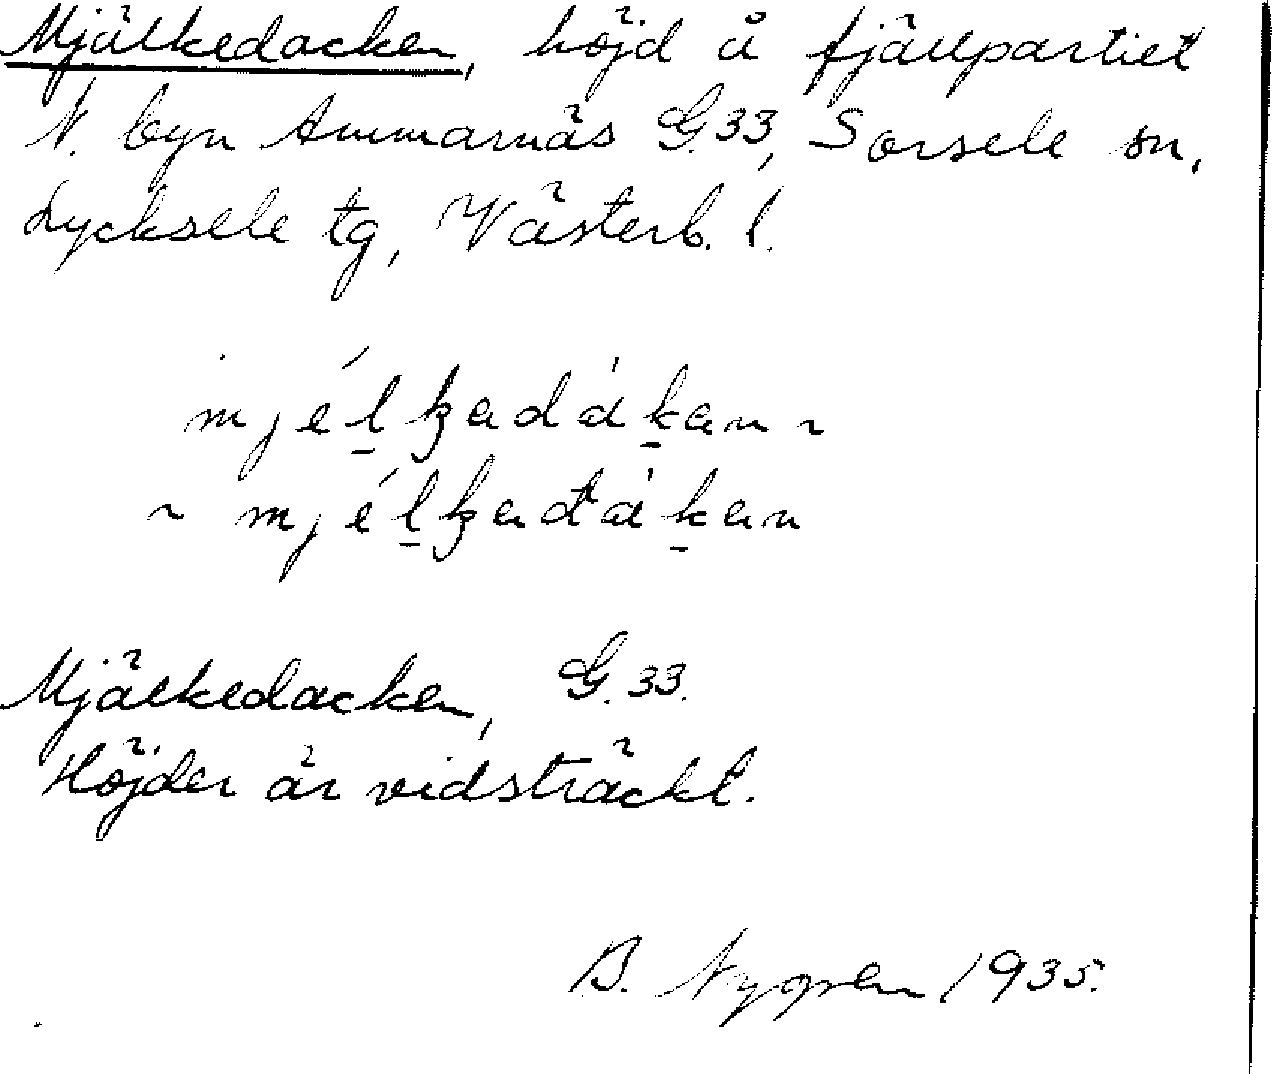 Mjälkedacken, höjd å fjällpartiet
N. byn Ammarnäs G.33, Sorsele sn,
Lycksele tg, Västerb. l.
mjélkadákan ~
~ mjélkađákan
Mjälkedacken, G.33.
Höjden är vidsträckt.
B. Nygren 1935.